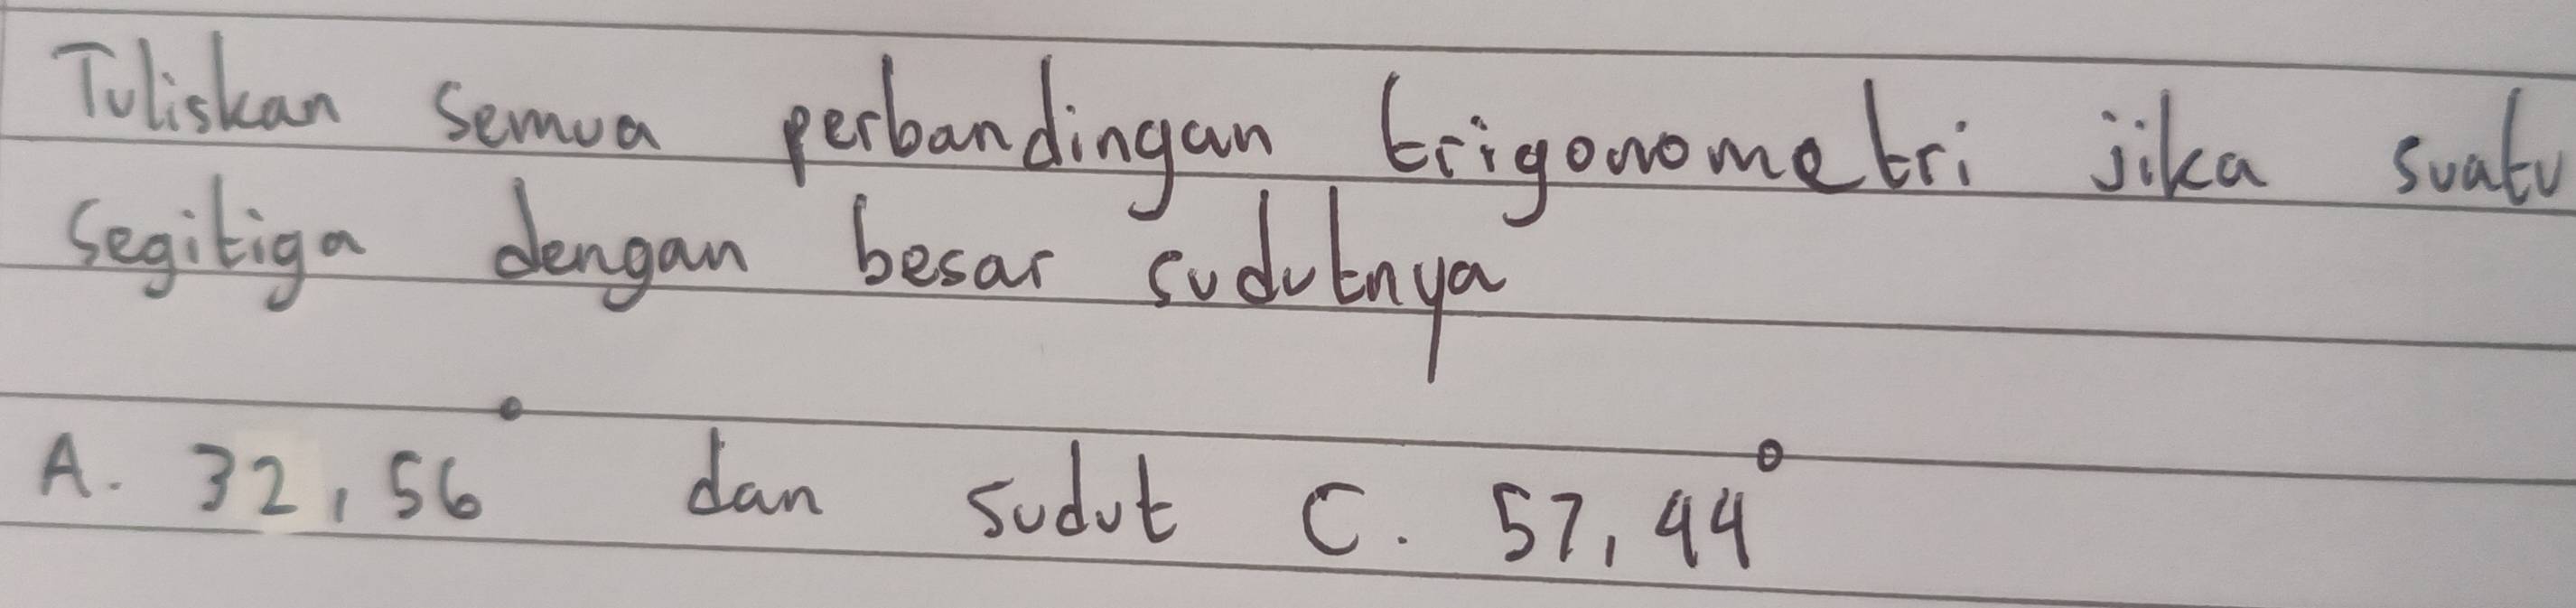 Tuliskan semua perbandingan trigonometri jika suatu
segitiga dengan besar sudutnya
A. 32,56° dan sudut C. 57,44°